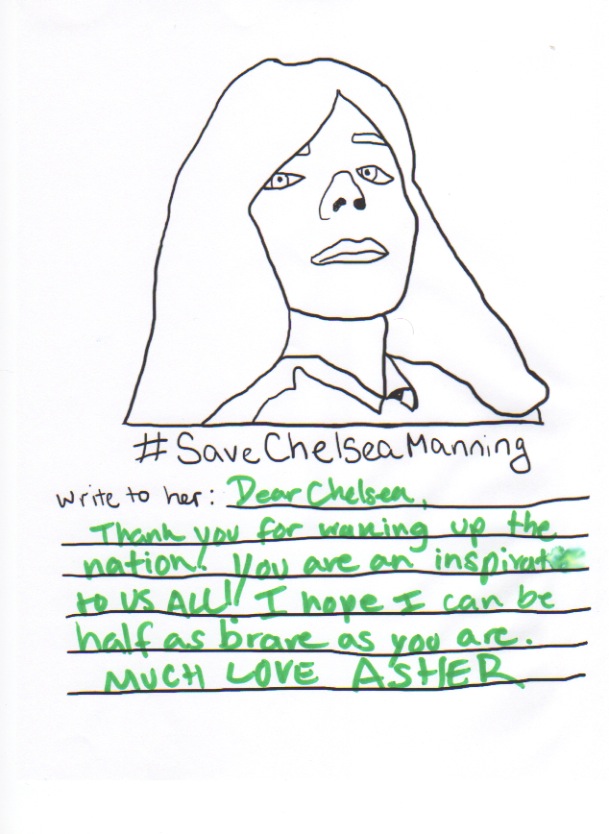 #SaveChelseaManning
write to her: Dear Chelsea,
Thank you for waking up the
nation! You are an
to US ALL!! I hope I can be
half as brave as you are.
MUCH LOVE ASHER